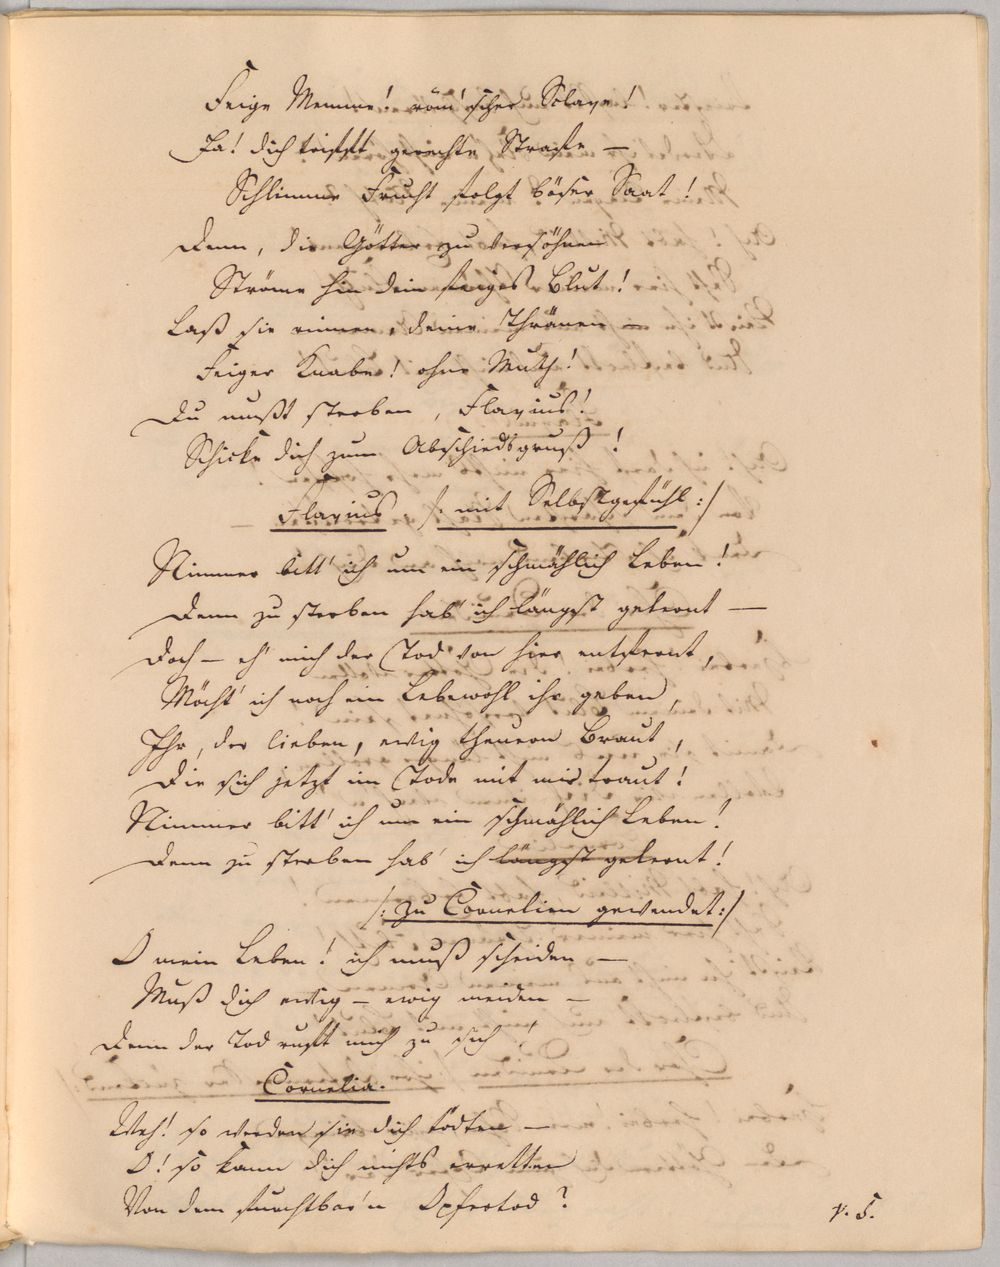 Feige Memme! röm'scher Sclave!
Ja! dich trifft gerechte Strafe —
Schlimme Frucht folgt böser Saat!
Denn, die Götter zu versöhnen
Ströme hin dein feiges Blut!
Laß sie rinnen, deine Thränen —
Feiger Knabe! ohne Muth!
Du mußt sterben, Flavius!
Schicke dich zum Abschiedsgruß!
Flavius /: mit Selbstgefühl :/
Nimmer bitt' ich um ein schmählich Leben!
Denn zu sterben hab' ich längst gelernt —
Doch — eh' mich der Tod von hier entfernt,
Möcht' ich noch ein Lebewohl ihr geben,
Ihr, der lieben, ewig theuern Braut,
Die sich jetzt im Tode mit mir traut!
Nimmer bitt' ich um ein schmählich Leben!
Denn zu sterben hab' ich längst gelernt!
/: zu Cornelien gewendet :/
O mein Leben! ich muß scheiden —
Muß dich ewig — ewig meiden —
Denn der Tod ruft mich zu sich!
Cornelia.
Weh! so werden sie dich tödten —
O! so kann dich nichts erretten
Von dem furchtbar'n Opfertod?
v. S.